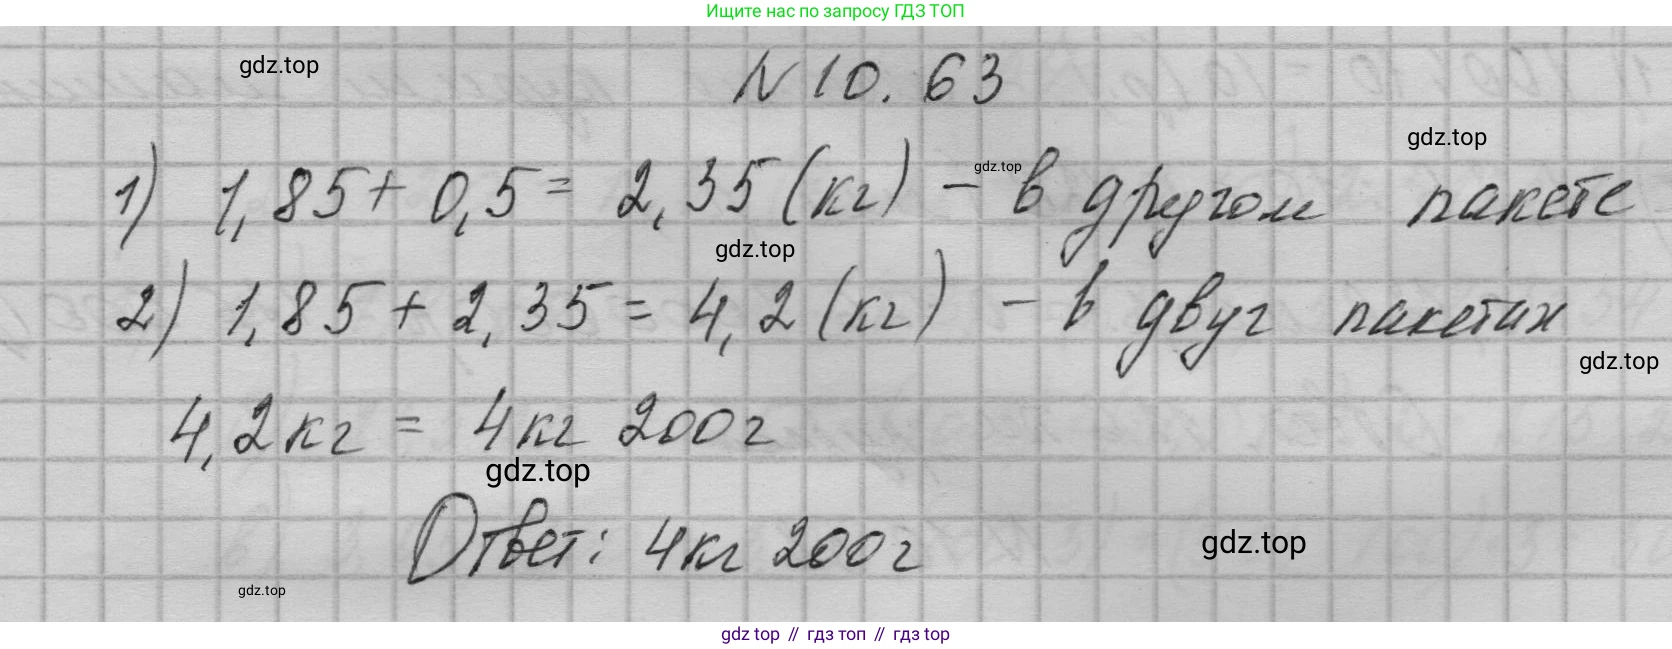 Ищите нас по запросу ГДЗ ТОП
gdz.top
N 10. 63
gdz.top
1) 1,85 + 0,5 = 2,35 (кг) - в другом пакете
gdz.top
gdz.top
2) 1,85 + 2,35 = 4,2 (кг) - в двуг пакетах
gdz.top
4,2 кг = 4кг 200г
gdz.top
Ответ: 4кг 200г
gdz.top
gdz.top
gdz top // гдз топ // гдз top